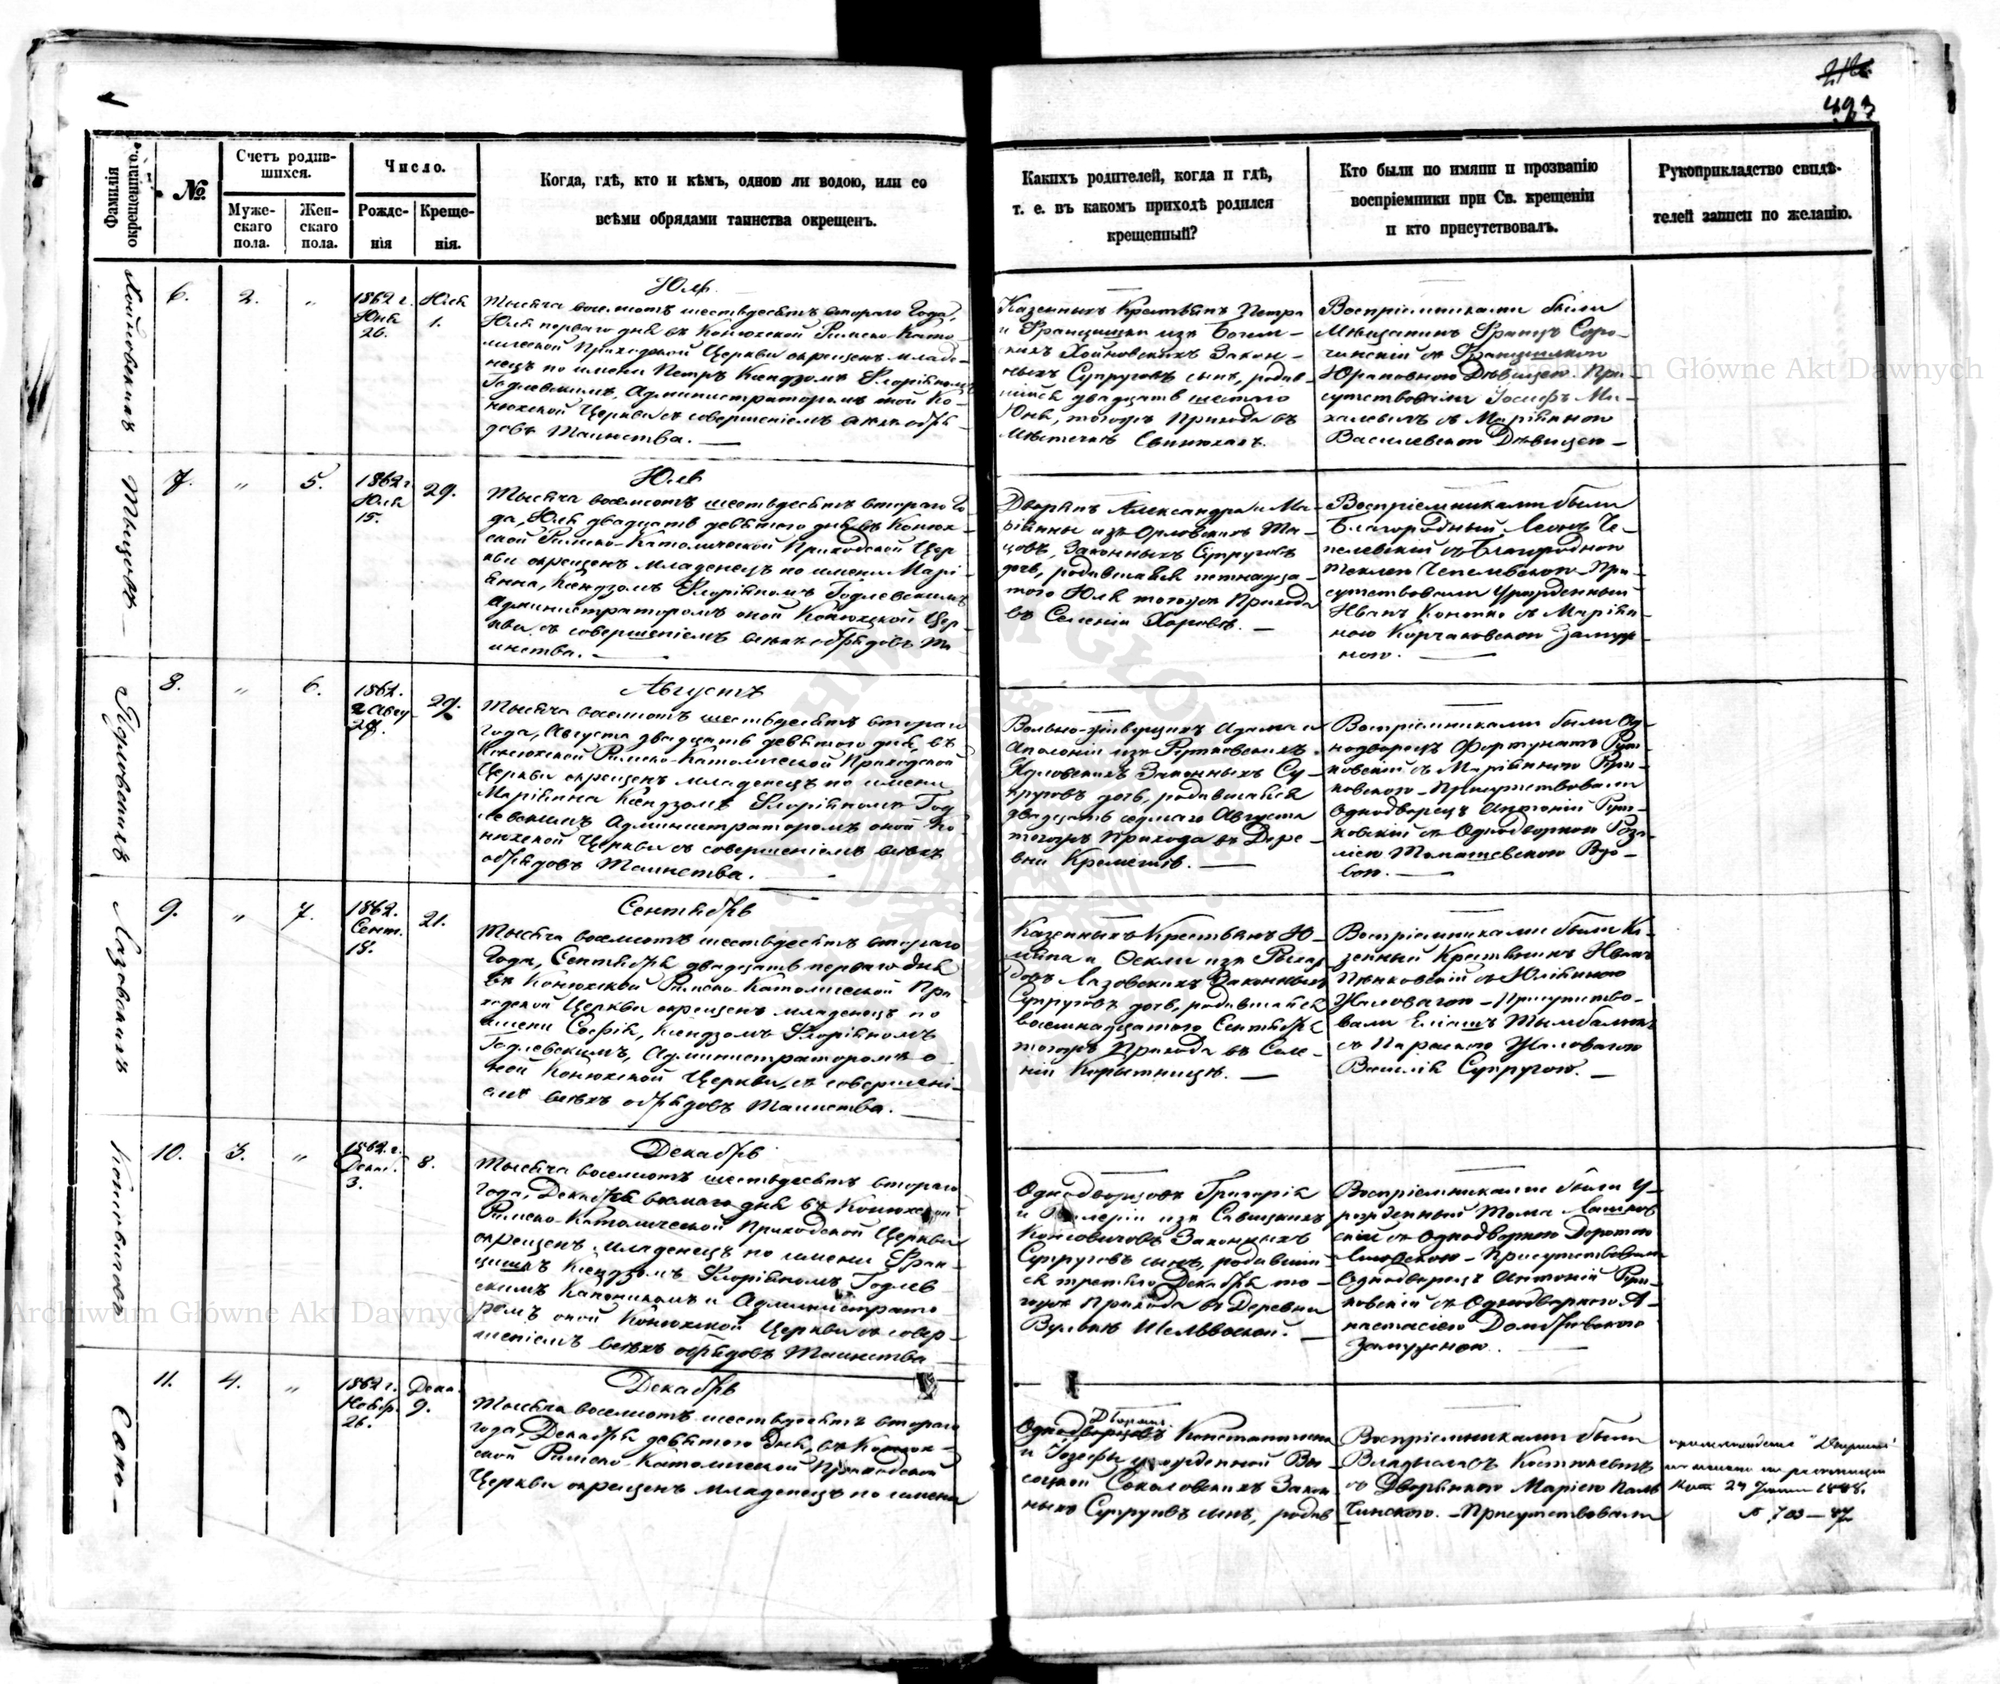 212
493
Фамилія окрещеннаго.
№.
Счетъ родив-
шихся.
Муже-
скаго
пола.
Жен-
скаго
пола.
Число.
Рожде-
нія
Креще-
нія.
Когда, гдѣ, кто и кѣмъ, одною ли водою, или со
всѣми обрядами таинства окрещенъ.
Какихъ родителей, когда и гдѣ,
т. е. въ какомъ приходѣ родился
крещенный?
Кто были по имяни и прозванію
воспріемники при Св. крещеніи
и кто присутствовалъ.
Рукоприкладство свидѣ-
телей записи по желанію.
Хойновскихъ
6.
2.
"
1862 г.
Юня
26.
Юля
1.
Юль
Тысяча восемсотъ шестьдесятъ втораго Года,
Юля перваго дня въ Конюхской Римско-Като-
лической Приходской Церкви окрещенъ младе-
нецъ по имени Петръ Ксендзомъ Флоріяномъ
Годлевскимъ, Администраторомъ оной Ко-
нюхской Церкви съ совершеніемъ всехъ обря-
довъ Таинства.
Казенныхъ Крестьянъ Петра
и Францишки изъ
Хойновскихъ Закон-
ныхъ Супруговъ сынъ, родив-
шійся двадцать шестаго
Юня, тогожъ Прихода въ
Местечке Свинюхахъ.
Воспріемниками были
Мѣщанинъ Францъ Соро-
чинскій съ Францишкою
Юрановною Дѣвицею. При-
сутствовали Іосифъ Ми-
халевичъ съ Маріянною
Василевскою Дѣвицею
Тыцовъ
7.
"
5.
1862 г.
Юля
15.
29.
Юль
Тысяча восемсотъ шестьдесятъ втораго Го-
да, Юля двадцать девятого дня въ Конюх-
ской Римско-Католической Приходской Цер-
кви окрещенъ младенецъ по имени Марі-
янна, Ксендзомъ Флоріяномъ Годлевскимъ
Администраторомъ оной Конюхской Цер-
кви, съ совершеніемъ всехъ обрядовъ Та-
инства.
Дворянъ Александра и Ма-
ріянны изъ Орловскихъ
Законныхъ Супруговъ
дочь, родившаяся пятнадца-
того Юля тогожъ Прихода
въ Селеніи Хоровъ.
Воспріемниками были
Благородный Леонъ Че-
пелевскій съ Благородною
Теклею Чепелевскою. При-
сутствовали Урожденный
Иванъ Конопко съ Марiян-
ною Корчаковскою Замуж-
нею.
8.
"
6.
1862.
Авгу
27.
29.
Августъ
Тысяча восемсотъ шестьдесятъ втораго
года, Августа двадцать девятого дня, въ
Конюхской Римско-Католической Приходской
Церкви окрещенъ младенецъ по имени
Маріянна Ксендзомъ Флоріяномъ Год-
левскимъ Администраторомъ оной Ко-
нюхской Церкви съ совершеніемъ всехъ
обрядовъ Таинства.
Вольно-живущихъ Адама и
Аполоніи изъ Рутковскихъ
Законныхъ Су-
пруговъ дочь, родившаяся
двадцать седмаго Августа
тогожъ Прихода въ Дере-
вни
Воспріемниками были Од-
нодворецъ Фортунатъ Рут-
ковскій съ Маріянною Рут-
ковскою. Присутствовали
Однодворецъ Антоній Рут-
ковскій съ Однодворкою Роза-
ліею Томашевскою Вдо-
вою.
Лазовскихъ
9.
"
7.
1862.
Сент.
18.
21.
Сентябрь
Тысяча восемсотъ шестьдесятъ втораго
Года, Сентября двадцать перваго дня
въ Конюхской Римско-Католической При-
ходской Церкви окрещенъ младенецъ по
имени Софія, Ксендзомъ Флоріяномъ
Годлевскимъ, Администраторомъ о-
ной Конюхской Церкви, съ совершені-
емъ всехъ обрядовъ Таинства.
Казенныхъ Крестьянъ Ю-
ліяна и Феклы изъ
Лазовскихъ Законныхъ
Супруговъ дочь, родившаяся
восемнадцатого Сентября
тогожъ Прихода въ Селе-
ніи Корытницѣ.
Воспріемниками были Ка-
зенный Крестьянинъ Иванъ
съ Юліянною
Присутство-
вали
съ
Василія Супругою.
Консевичовъ
10.
3.
"
1862 г.
Декаб.
3.
8.
Декабрь
Тысяча восемсотъ шестьдесятъ втораго
года, Декабря восмаго дня въ Конюхской
Римско-Католической Приходской Церкви
окрещенъ младенецъ по имени Фран-
цишкъ Ксендзомъ Флоріяномъ Годлев-
скимъ Каноникомъ и Администрато-
ромъ оной Конюхской Церкви съ совер-
шеніемъ всехъ обрядовъ Таинства
Однодворцовъ Григорія
и Валеріи изъ Савицкихъ
Консовичовъ Законныхъ
Супруговъ сынъ, родивший-
ся третьяго Декабря то-
гожъ Прихода въ Деревни
Вульке Шельвовской.
Воспріемниками были У-
рожденный Тома
съ Однодворкою Доротою
Присутствовали
Однодворецъ Антоній Рут-
ковскій съ Однодворкою А-
настасіею Домбровскою
Замужнею.
Соко-
11.
4.
"
1862 г.
Ноябр.
26.
Дека.
9.
Декабрь
Тысяча восемсотъ шестьдесятъ втораго
года, Декабря девятого Дня, въ Конюх-
ской Римско-Католической Приходской
Церкви окрещенъ младенецъ по имени
Дворянъ
Однодворцовъ Константина
и Іозефы урожденной Вы-
соцкой Соколовскихъ Закон-
ныхъ Супруговъ сынъ, родив
Воспріемниками были
Владыславъ
съ Дворянкою Маріею Паль-
чинскою. Присутствовали
"Дворянъ"
1888.
№ 703 — 87
Archiwum Główne Akt Dawnych
Archiwum Główne Akt Dawnych